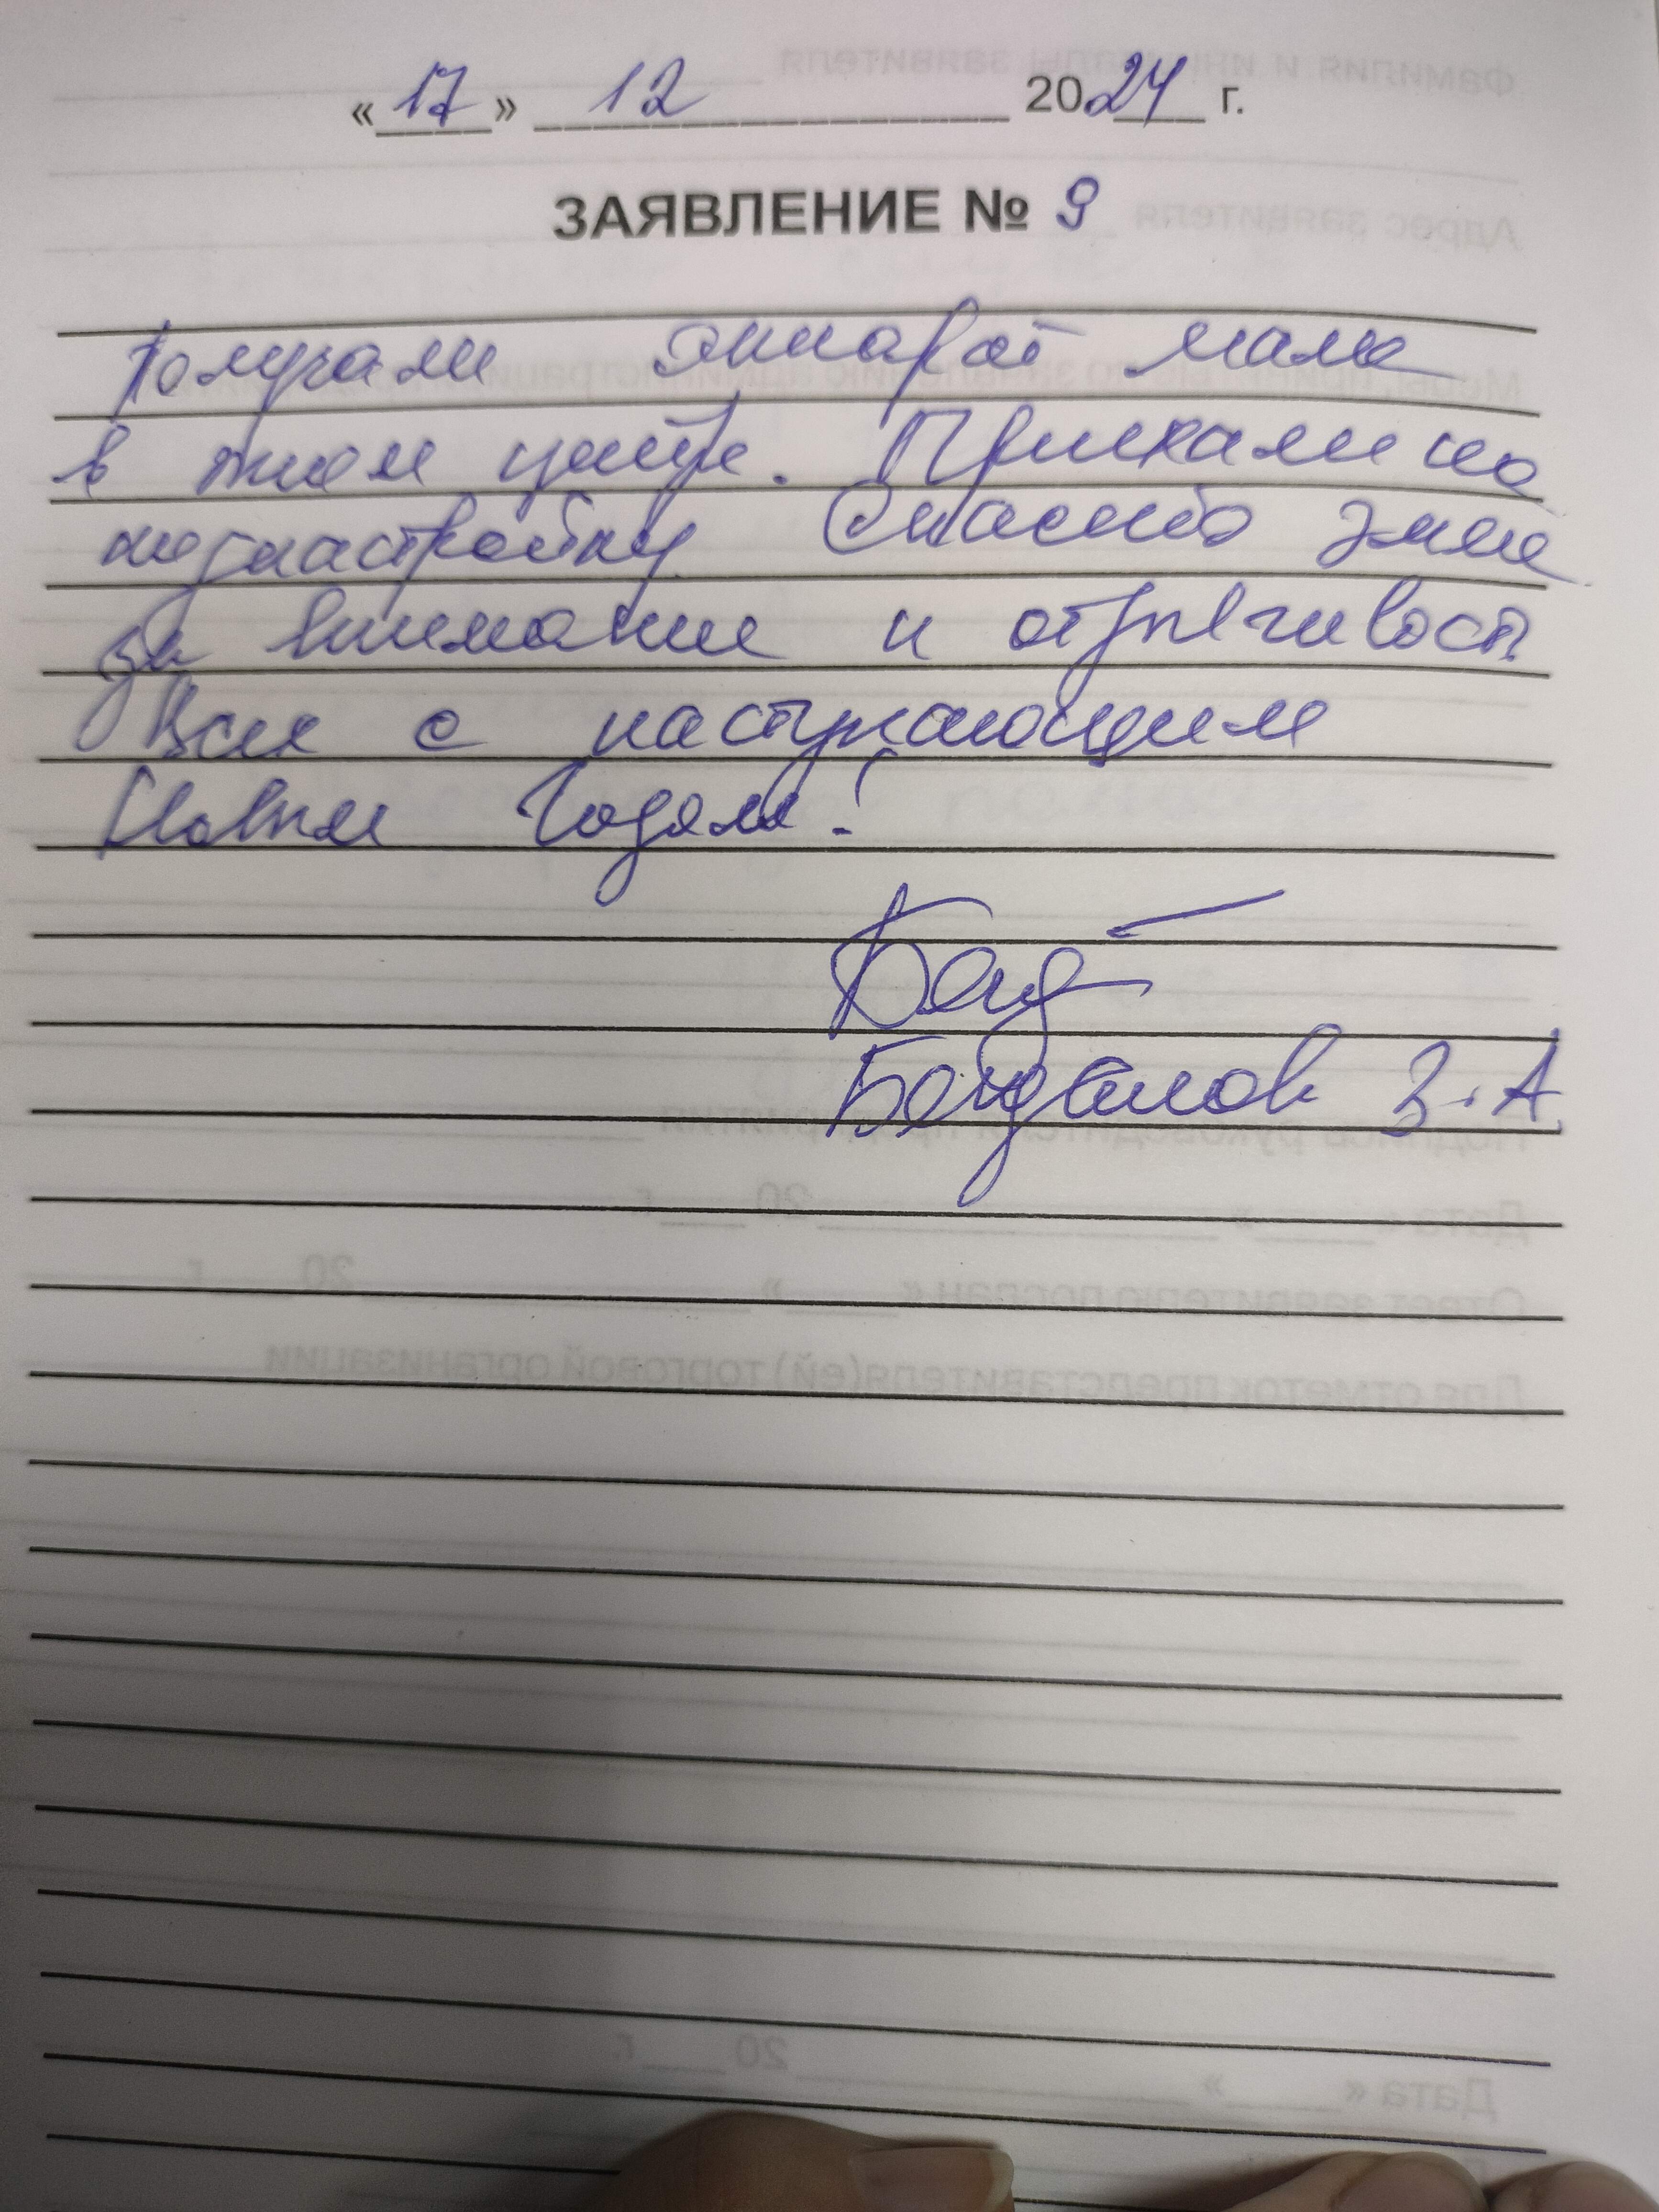 «17» 12 2024 г.
ЗАЯВЛЕНИЕ № 9
Получали аппарат маме
в этом центре. Приехали на
поднастройку Спасибо Эмме
за внимание и отзывчивость
Всех с наступающим
Новым Годом!
З.А.